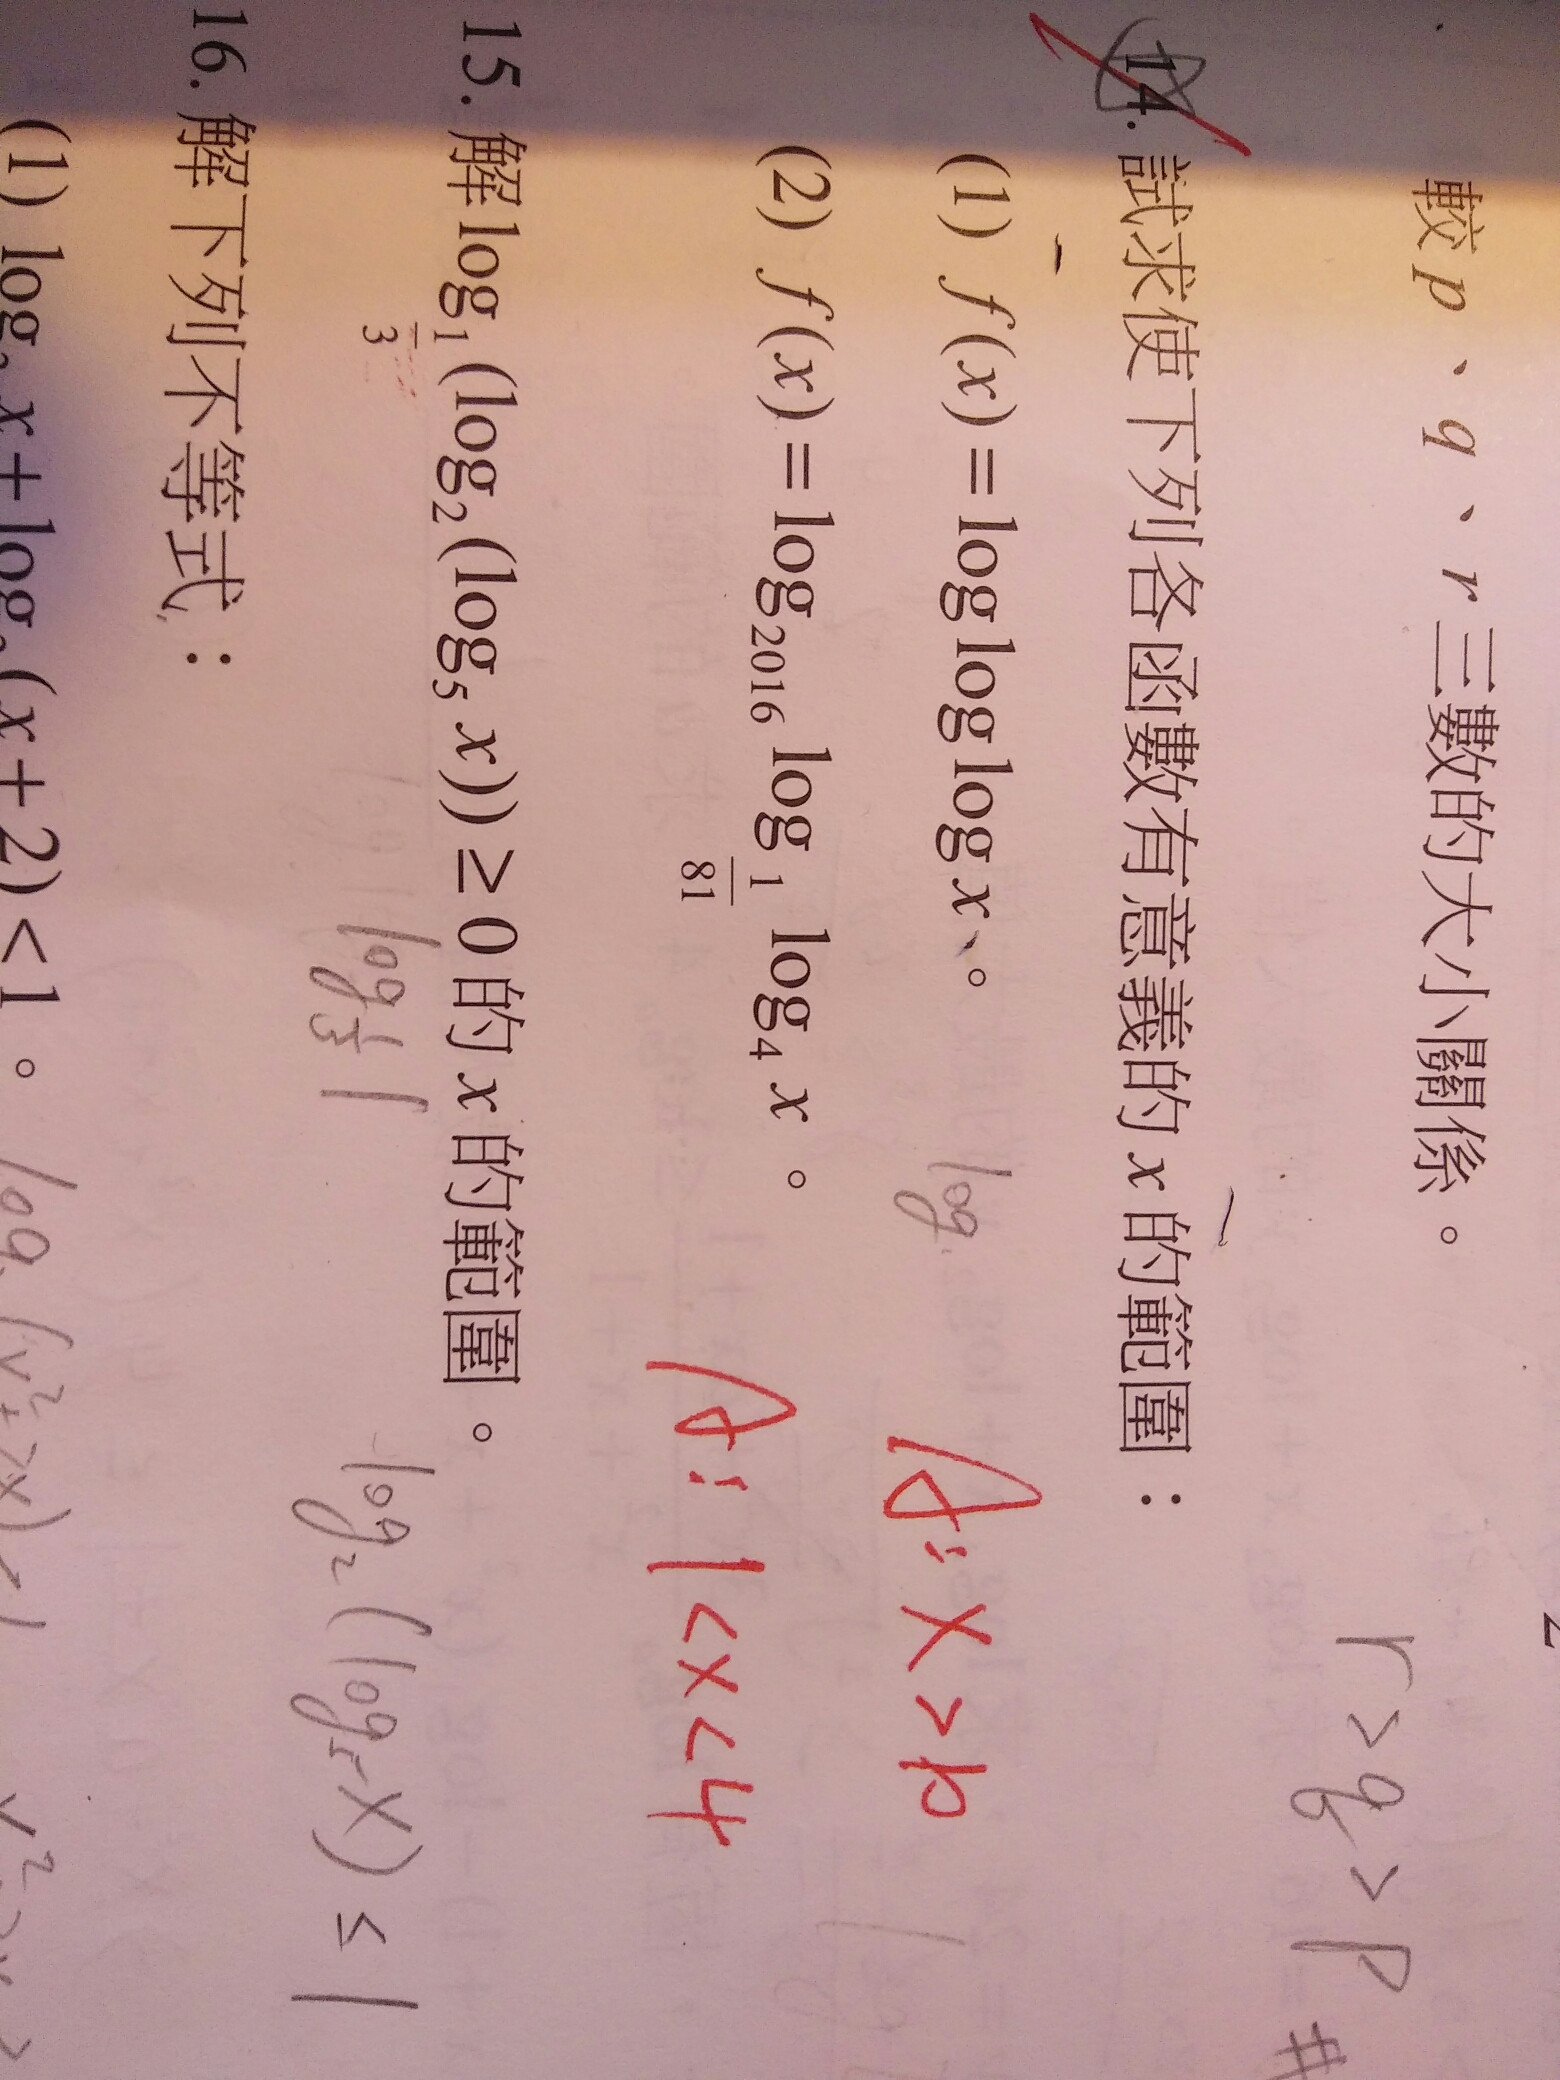 較 p、q、r 三數的大小關係。
r>q>p #
14. 試求使下列各函數有意義的 x 的範圍：
(1) f(x)=log log log x。
log
A: x>10
(2) f(x)=log₂₀₁₆ log_{1/81} log₄ x。
A: 1<x<4
15. 解 log_{1/3}(log₂(log₅ x))≥0 的 x 的範圍。
log_{1/3} 1
log₂(log₅ x) ≤ 1
16. 解下列不等式：
(1) log x+log (x+2)<1。